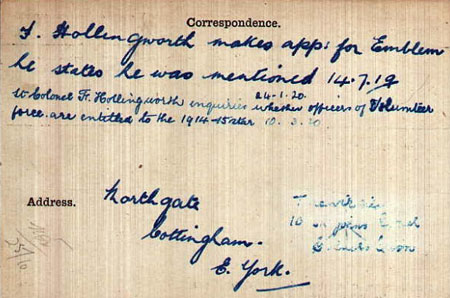 Correspondence.
F. Hollingworth makes app: for Emblem
he states he was mentioned 14.7.19
24-1-20.
Lt Colonel Fr. Hollingworth enquiries whether officers of Volunteer
force are entitled to the 1914-15 star 10.3.20
Address.
Northgate
Cottingham.
E. York.
10